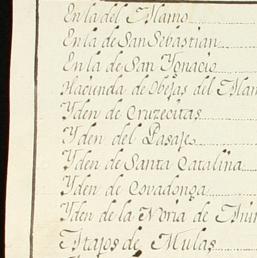 En la del Alamo
En la de San Sebastian
En la de San Ygnacio
Hacienda de Obejas del Alam
Yden de Cruzecitas
Yden del Pasaje
Yden de Santa Catalina
Yden de Covadonga
Yden de la Noria de
Atajos de Mulas